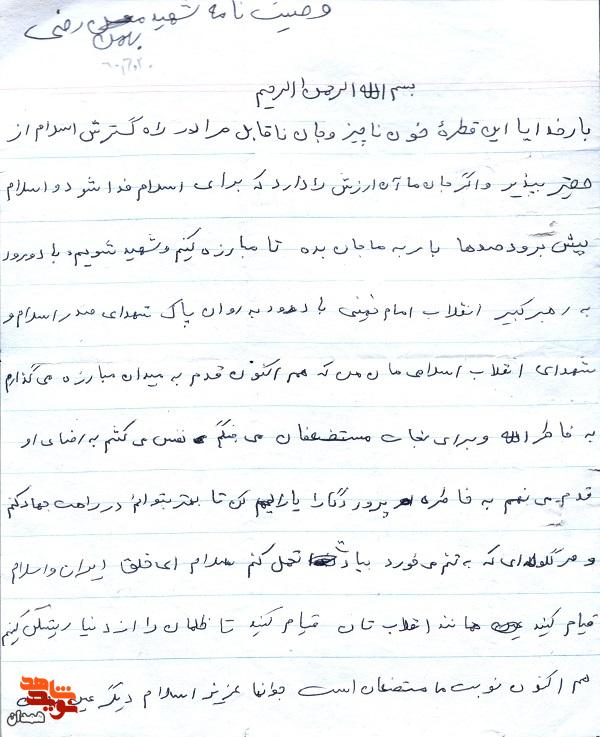 وصیت نامه شهید رضی
بسم الله الرحمن الرحیم
بارخدایا این قطرهٔ خون ناچیز و جان ناقابل مرا در راه گسترش اسلام از
حقیر بپذیر و اگر جان ما آن ارزش را دارد که برای اسلام فدا شود و اسلام
پیش برود صدها بار به ما جان بده تا مبارزه کنیم و شهید شویم، با دورود
به رهبر کبیر انقلاب امام خمینی با درود به روان پاک شهدای صدر اسلام و
شهدای انقلاب اسلامی مان من که هم اکنون قدم به میدان مبارزه می گذارم
به خاطر الله و برای نجات مستضعفان می جنگم نفس می کشم به رضای او
قدم می نهم به خاطره پروردگارا یاریم کن تا بهتر بتوانم در راهت جهاد کنم
و هر گلوله ای که به تنم می خورد بیادت تحمل کنم سلام ای خلق ایران و اسلام
قیام کنید همانند انقلاب تان قیام کنید تا ظلمان را از دنیا ریشکن کنیم
هم اکنون نوبت ما مستضعفان است جوانها عزیز اسلام دیگر
شاهد
نوید
همدان